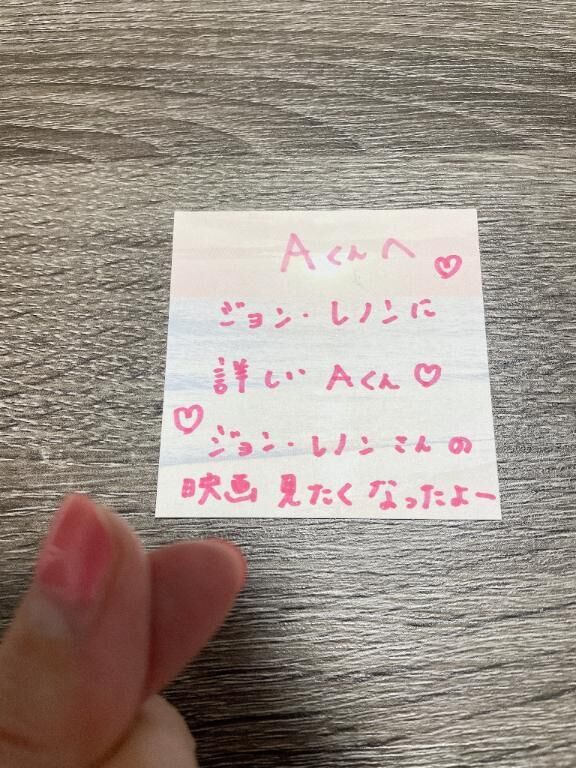 Aくんへ♡
ジョン・レノンに
詳しい Aくん♡
♡ジョン・レノンさんの
映画 見たくなったよー